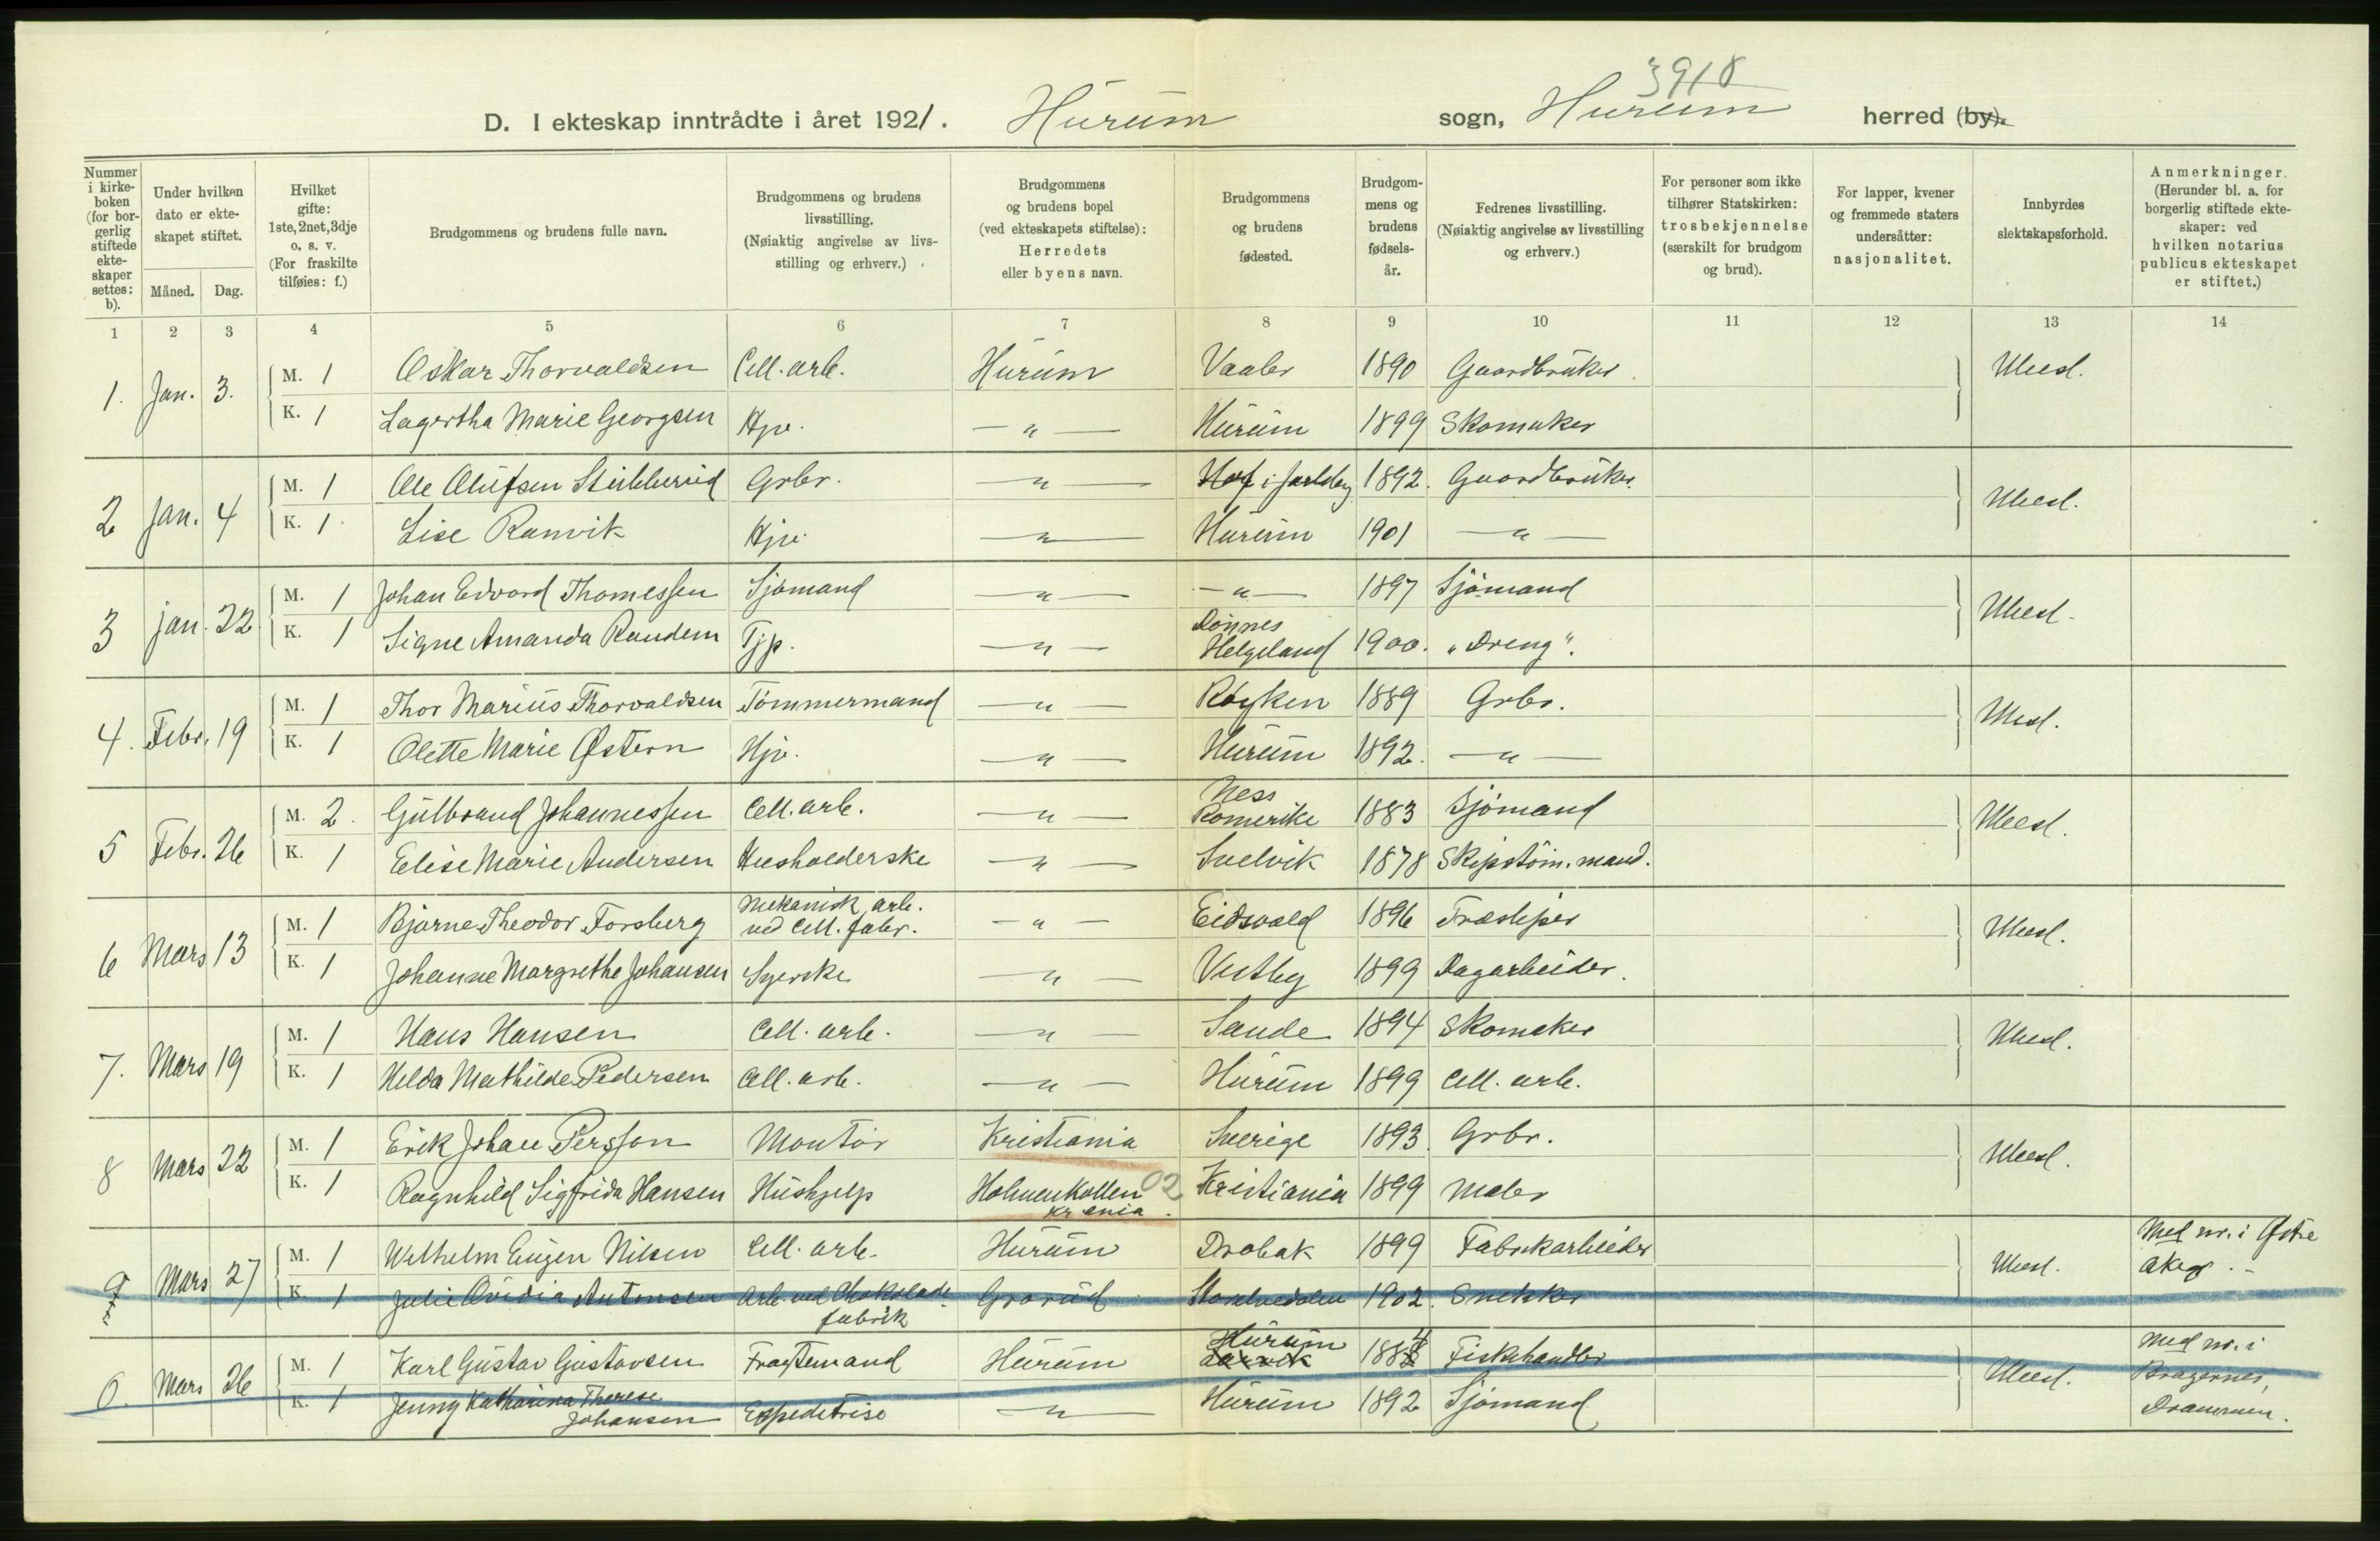 3918
D. I ekteskap inntrådte i året 1921. Hurum sogn, Hurum herred (by).
Nummer i kirke- boken (for bor- gerlig stiftede ekte- skaper settes: b).
Under hvilken dato er ekte- skapet stiftet.
Måned. Dag.
Hvilket gifte: 1ste, 2net, 3dje o. s. v. (For fraskilte tilføies: f.)
Brudgommens og brudens fulle navn.
Brudgommens og brudens livsstilling. (Nøiaktig angivelse av livs- stilling og erhverv.)
Brudgommens og brudens bopel (ved ekteskapets stiftelse): Herredets eller byens navn.
Brudgommens og brudens fødested.
Brudgom- mens og brudens fødsels- år.
Fedrenes livsstilling. (Nøiaktig angivelse av livsstilling og erhverv.)
For personer som ikke tilhører Statskirken: trosbekjennelse (særskilt for brudgom og brud).
For lapper, kvener og fremmede staters undersåtter: nasjonalitet.
Innbyrdes slektskapsforhold.
Anmerkninger. (Herunder bl. a. for borgerlig stiftede ekte- skaper: ved hvilken notarius publicus ekteskapet er stiftet.)
1 2 3 4 5 6 7 8 9 10 11 12 13 14
1. Jan. 3. M. 1 Oskar Thorvaldsen Cell. arb. Hurum Vaaler 1890 Gaardbruker Ubesl.
K. 1 Lagertha Marie Georgsen Hjv. — " — Hurum 1899 Skomaker
2 Jan. 4 M. 1 Ole Olufsen Stubberud Grbr. — " — Hof i Jarlsberg 1892. Gaardbruker. Ubesl.
K. 1 Lise Ramvik Hjv. — " — Hurum 1901 — " —
3 jan. 22 M. 1 Johan Edvard Thomessen Sjømand — " — — " — 1897 Sjömand Ubesl.
K. 1 Signe Amanda Randem Tjp. — " — Dønnes Helgeland 1900. "Dreng".
4. Febr. 19 M. 1 Thor Marius Thorvaldsen Tømmermand — " — Røyken 1889 Grbr. Ubesl.
K. 1 Olette Marie Østern Hjv. — " — Hurum 1892. — " —
5 Febr. 26 M. 2. Gulbrand Johannessen Cell. arb. — " — Ness Romerike 1883 Sjömand Ubesl.
K. 1 Elise Marie Andersen Husholderske — " — Svelvik 1878 Skipstöm. mand.
6 Mars 13 M. 1 Bjarne Theodor Forsberg mekanisk arb. ved Cell. fabr. — " — Eidsvold 1896 Træsliper Ubesl.
K. 1 Johanne Margrethe Johansen Syerske — " — Vestby 1899 Dagarbeider.
7. Mars 19 M. 1 Hans Hansen Cell. arb. — " — Sande 1894 Skomaker Ubesl.
K. 1 Helda Mathilde Pedersen Cell. arb. — " — Hurum 1899 Cell. arb.
8 Mars 22 M. 1 Erik Johan Persson Montör Kristiania Sverige 1893. Grbr. Ubesl.
K. 1 Ragnhild Sigfrida Hansen Hushjelp Holmenkollen Kr ania. 02 Kristiania 1899 Maler
9 Mars 27 M. 1 Wilhelm Eugen Nilsen Cell. arb. Hurum Drøbak 1899 Fabrikarbeider Ubesl. Med nr. i Østre Aker. -
K. 1 Julie Ovidia Antonsen Arb. ved Chokolade fabrik Grorud 1902. Snekker
0. Mars 26 M. 1 Karl Gustav Gustavsen Fragtemand Hurum Hurum Larvik 1884 Fiskehandler Ubesl. Med nr. i Bragernes, Drammen.
K. 1 Jenny Katharina Therese Johansen Expeditrise — " — Hurum 1892 Sjømand